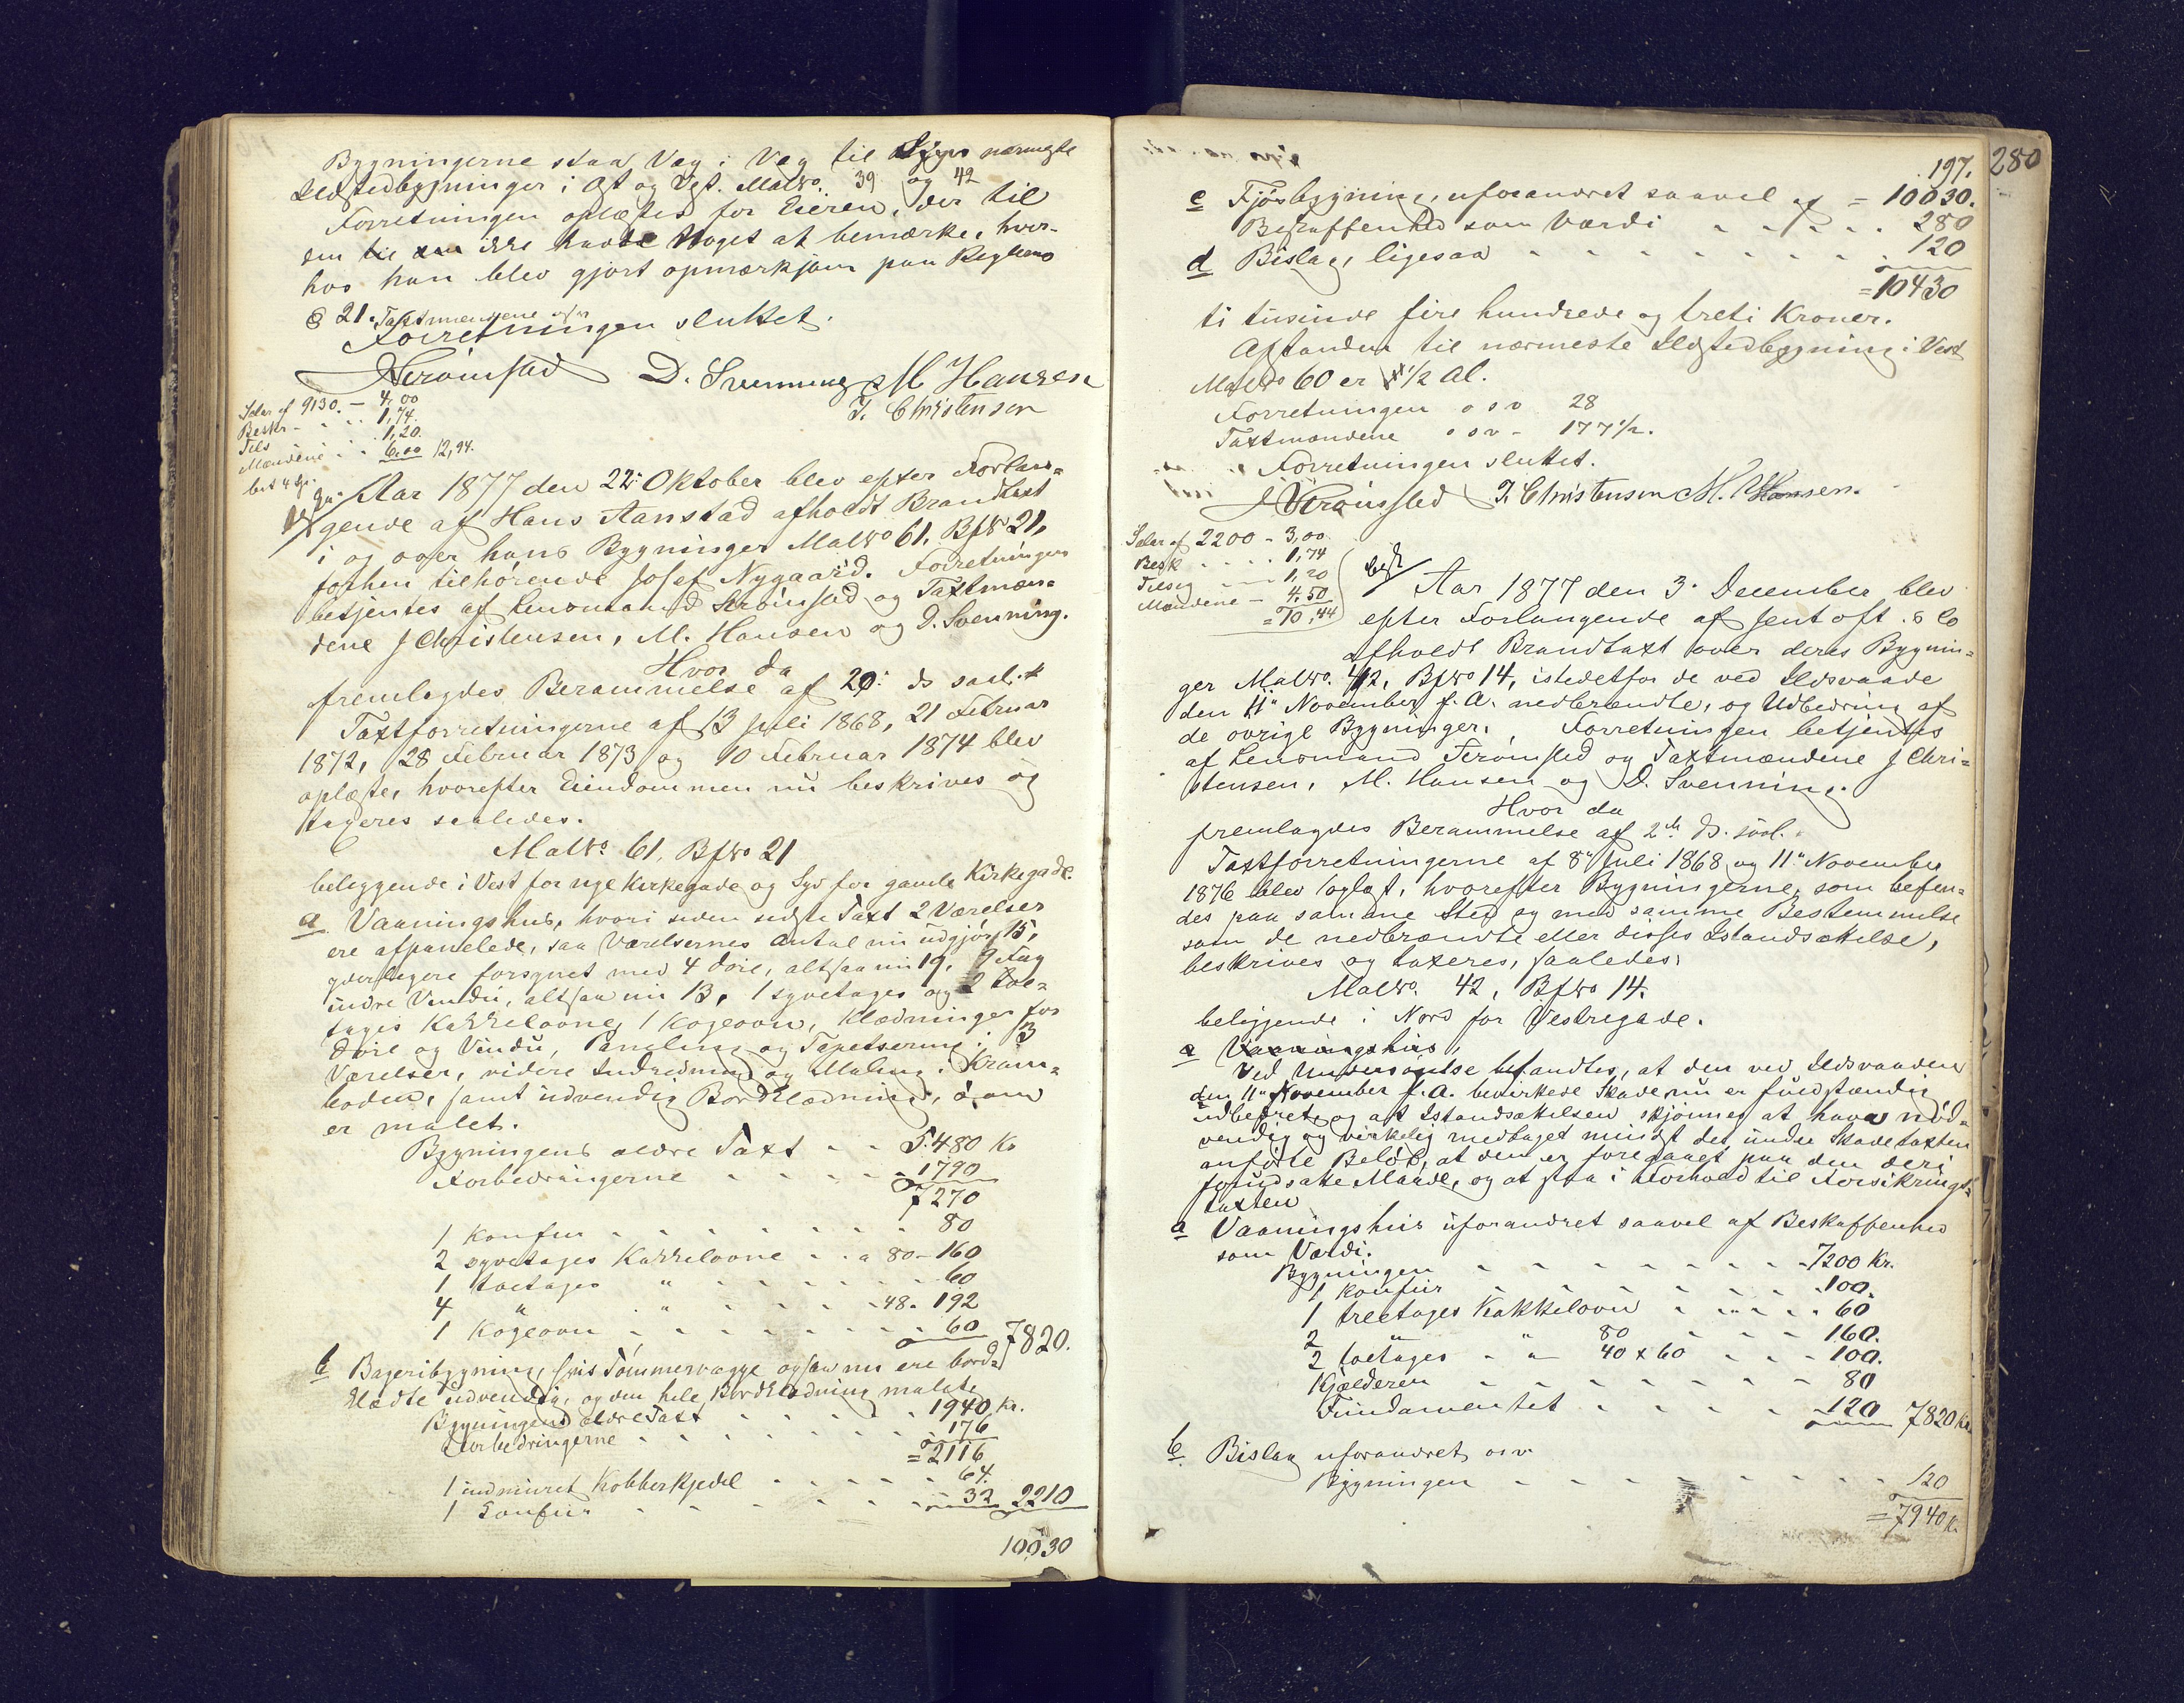 Bygningerne staa Væg i Væg til nærmeste
Ildstedbygninger i Øst og Vest. Matr No. 39 og 42
Forretningen oplæstes for Eieren, der til
den ikke havde Noget at bemærke, hvor-
hos han blev gjort opmærksom paa Reglens
§ 21. Taxtmændene
Forretningen sluttet.
D. Svenning M Hansen
J. Christensen
Salær af 9130. - 4,00
Beskr - - - 1,74.
Tils - - - 1,20.
Mændene - - 6,00 12,94.
Aar 1877 den 22: Oktober blev efter Forlan=
gende af Hans Aanstad afholdt Brandtaxt
i og over hans Bygninger Matr No 61. Bf No 21,
forhen tilhørende Josef Nygaard. Forretningen
betjentes af Lensmand Strømsted og Taxtmæn=
dene J Christensen, M. Hansen og D. Svenning.
Hvor da
fremlagdes Berammelse af 20: ds saal. #
Taxtforretningerne af 13 Juli 1868, 21 Februar
1872, 28 Februar 1873 og 10 Februar 1874 blev
oplæste, hvorefter Eiendommen nu beskrives og
taxeres saaledes.
Matr No. 61, Bf No 21
beliggende i Vest for nye Kirkegade og Syd for gamle Kirkegade.
a. Vaaningshus, hvori siden sidste Taxt 2 Værelser
ere afpanelede, saa Værelsernes Antal nu udgjør 15,
yderligere forsynet med 4 Døre, altsaa nu 19, 9 Fag
indre Vindu, altsaa nu 13, 1 syvetages og 2 toe=
tages Kakkelovne, 1 Kogeovn, Klædninger for
Døre og Vindu, Paneling og Tapetsering i 13
Værelser, videre Indredning og Maling i Kram=
boden, samt udvendig Bordklædning, som
er malet.
Bygningens ældre Taxt - - 5.480 Kr
Forbedringerne - - - - 1790
7270
1 Komfur - - - - - - - 80
2 syvetages Kakkelovne - - a 80 - 160
1 toetages " - - - - - 60
4 " " - - - - - 48. 192
1 Kogeovn - - - - - - - 60 7820.
b Bageribygning, hvis Tømmervægge ogsaa nu ere bord=
klædte udvendig, og den hele Bordklædning malet.
Bygningens ældre Taxt - - - - 1940 Kr.
Forbedringerne - - - - - - 176
= 2116
1 indmuret Kobberkjedel - - - - - 64.
1 Komfur - - - - - - - 32 2210
10030
197. 280
c Fjøsbygning, uforandret saavel af = 10030.
Beskaffenhed som Værdi - - - - 280
d Bislag, ligesaa - - - - - - - - 120
= 10430
ti tusinde fire hundrede og treti Kroner.
Afstanden til nærmeste Ildstedbygning i Vest
Matr No 60 er 1/2 Al.
Forretningen o s v 28
Taxtmændene o s v - 177 1/2.
Forretningen sluttet.
J. Christensen M. Hansen.
Salær af 2200 - 3,00
Besk - - - - 1,74
Tilsig - - - 1,20
Mændene - 4.50
= 10,44
Aar 1877 den 3. December blev
efter Forlangende af Jentoft & Co
afholdt Brandtaxt over deres Bygnin=
ger Matr No. 42, Bf No 14, istedetfor de ved Ildsvaade
den 11te November f. A. nedbrændte, og Udbedring af
de øvrige Bygninger. Forretningen betjentes
af Lensmand Strømsted og Taxtmændene J Chri=
stensen, M. Hansen og D. Svenning.
Hvor da
fremlagdes Berammelse af 2den ds. saal.
Taxtforretningerne af 8de Juli 1868 og 11te November
1876 blev oplæst, hvorefter Bygningerne, som befin=
des paa samme Sted og med samme Bestemmelse
som de nedbrændte eller disses Istandsættelse,
beskrives og taxeres, saaledes:
Matr No. 42, Bf No 14.
beliggende i Nord for Vestregade.
a Vaaningshus,
Ved Undersøgelse befandtes, at den ved Ildsvaaden
den 11te November f. A. bevirkede Skade nu er fuldstændig
udbedret, og at Istandsættelsen skjønnes at have nød=
vendig og virkelig medtaget mindst det under Skadetaxten
anførte Beløb, at den er foregaaet paa den deri
forudsatte Maade, og at staa i Forhold til Forsikrings=
taxten
a Vaaningshus uforandret saavel af Beskaffenhed
som Værdi.
Bygningen - - - - - - - - 7200 Kr.
1 Komfur - - - - - - - 100.
1 treetages Kakkelovn - - - - - 60
2 " " 80 - - - 160.
2 toetages - - 40 x 60 - - - 100.
Kjælderen - - - - - - - 80
Fundamentet - - - - - 120 7820 Kr
b. Bislag uforandret osv.
Bygningen - - - - - - - - 120
= 7940 Kr.